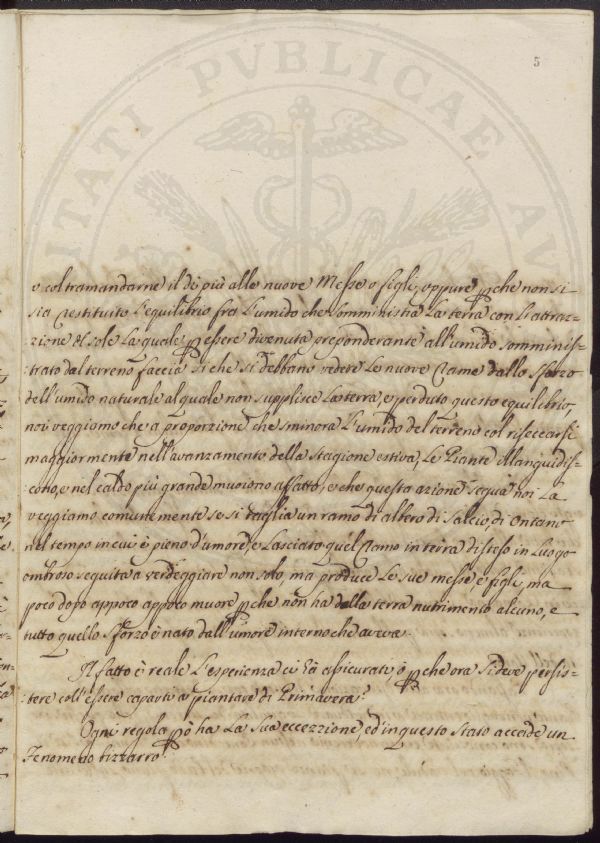 5
o col tramandarne il di più alle nuove Messe o figli, oppure pche non si
sia restituito l'equilibrio fra l'umido che somministra la terra con l'attraz-
:zione del sole la quale p essere divenuta preponderante all'umido somminis-
trato dal terreno faccia si che si debbano vedere le nuove rame dallo sforzo
dell'umido naturale al quale non supplisce la terra, e perduto questo equilibrio,
noi veggiamo che a proporzione che sminora l'umido del terreno col riseccarsi
maggiormente nell'avanzamento della stagione estiva, le Piante illanguidis-
cono, e nel caldo più grande muoiono affatto, e che questa azione segua noi la
veggiamo comunemente se si taglia un ramo di albero di Salcio, di Ontano
nel tempo in cui è pieno d'umore, e lasciato quel ramo in terra disteso in luogo
ombroso seguita a verdeggiare non solo, ma produce le sue messe, e figli, ma
poco dopo appoco appoco muore pche non ha dalla terra nutrimento alcuno, e
tutto quello sforzo è nato dall'umore interno che aveva.
Il fatto è reale l'esperienza ci ha assicurati, o pche ora si deve persis-
:tere coll'essere caparti a piantare di Primavera?
Ogni regola pò ha la sua eccezzione, ed in questo stato accade un
Fenomeno bizzarro.
ITATI PVBLICAE AV